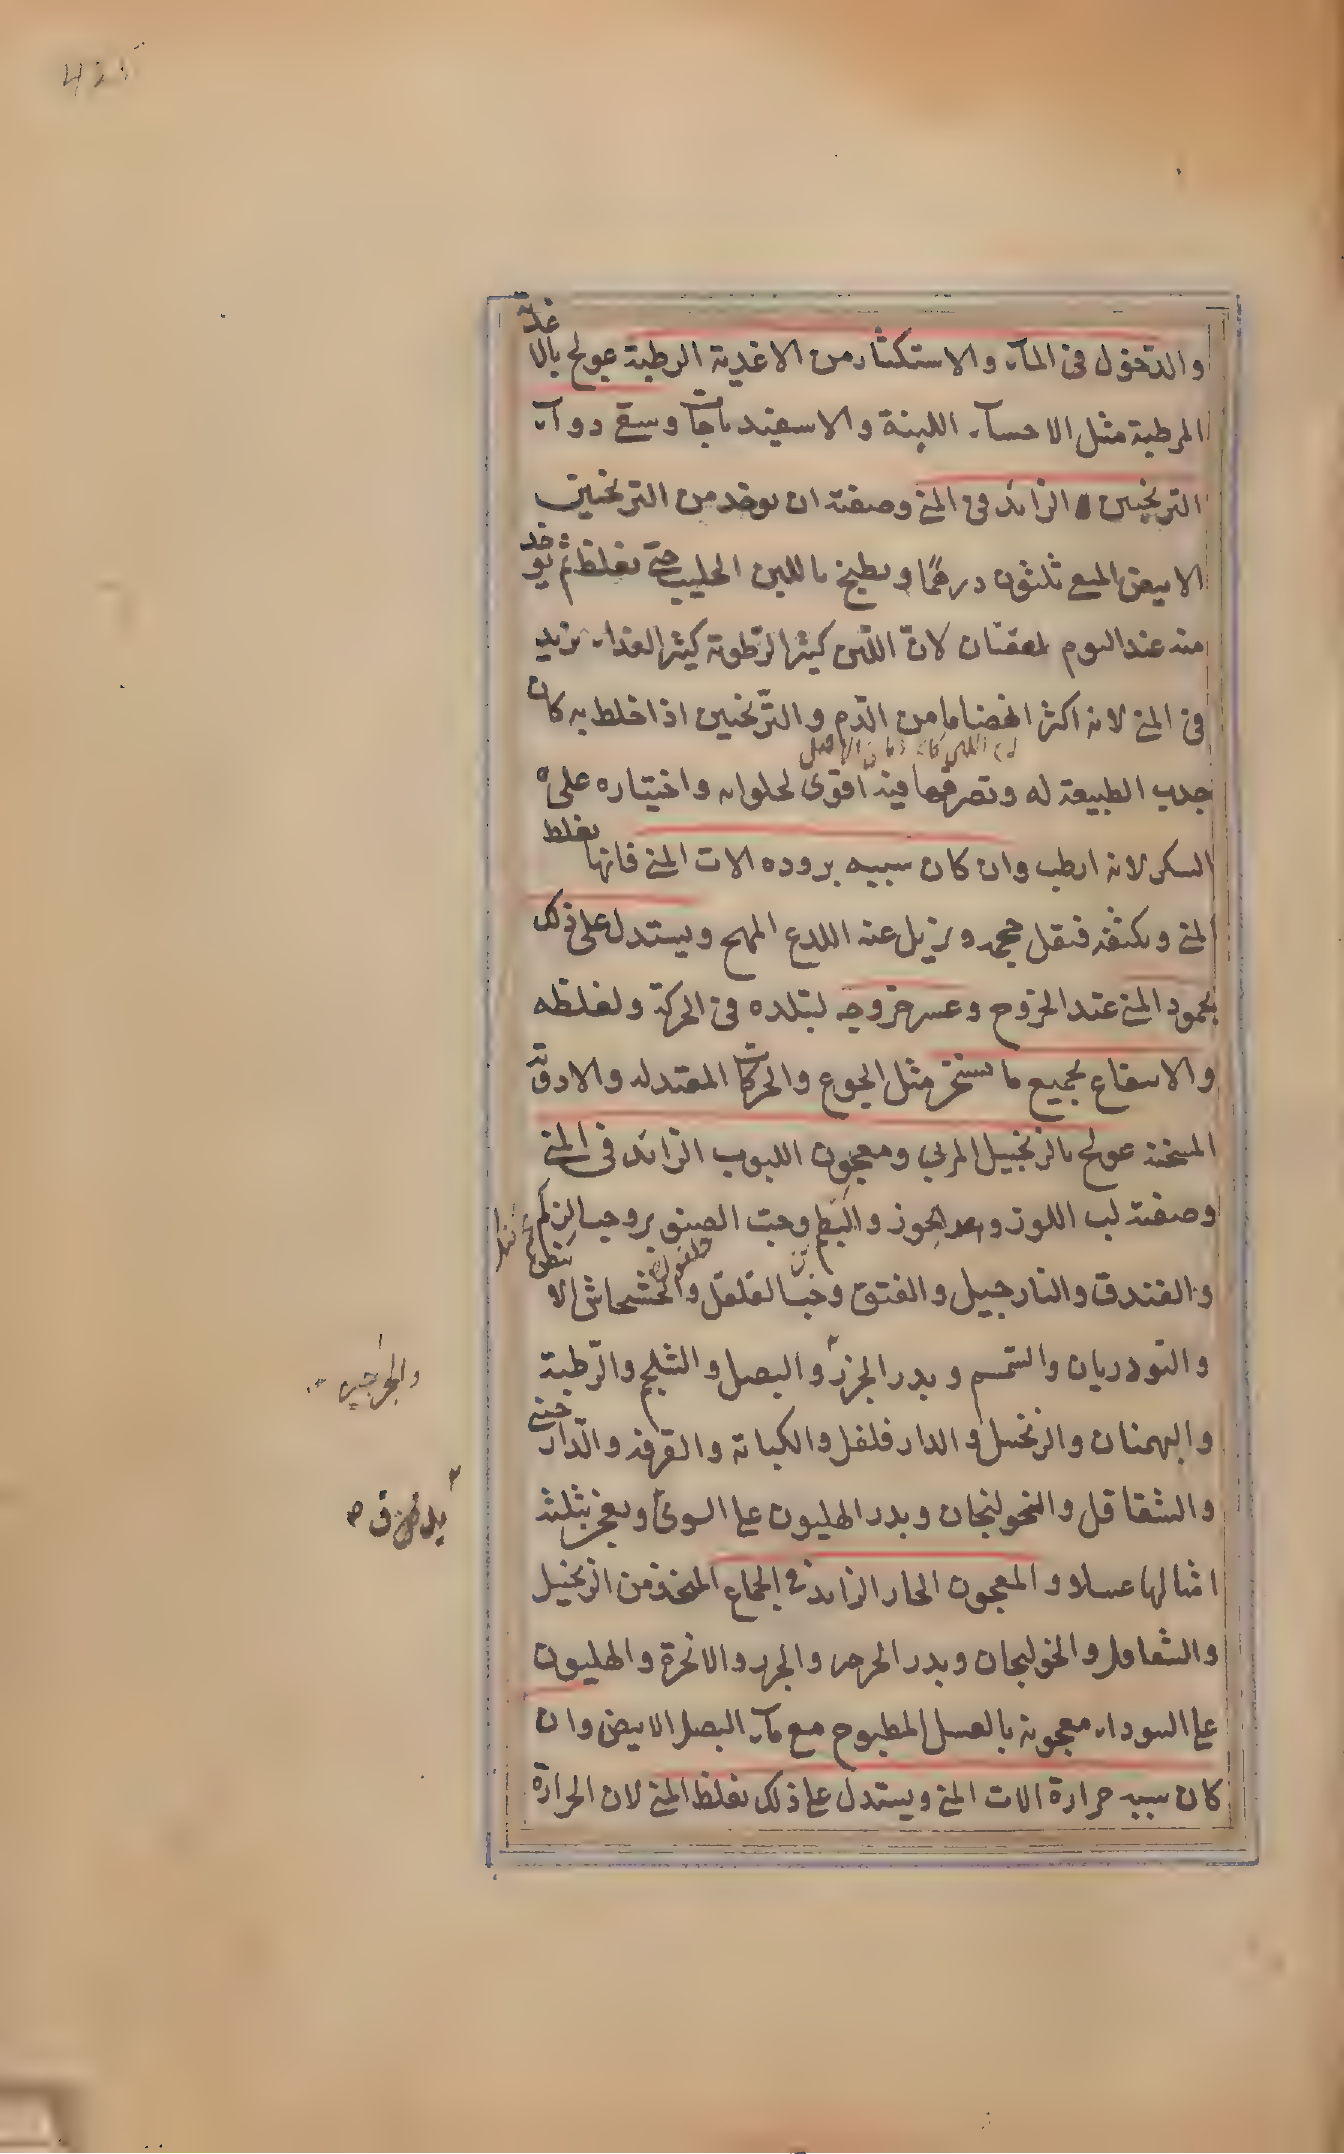 والدخول فى المآء والاستكثار من الاغذية الرطبة عولج بالاغذية
المرطبة مثل الاحسآء اللبنة والاسفيدباجات وسقى دوآء
الترنجبين الزائد فى المنى وصفته ان يوخذ من الترنجبين
الابيض ثلثون درهمًا ويطبخ باللبن الحليب حتى يغلظ ثم يوخذ
منه عند النوم ملعقتان لانّ اللبن كثير الرّطوبة كثير الغذاء يزيد
فى المنى لانه اكثر انهضاما من الدّم والترنجبين اذا خلط به كان
جذب الطبيعة له وتصرفها فيه اقوى لحلاوته واختياره على
السكر لانه ارطب وان كان سببه بروده الات المنى فانها تغلظ
المنى وتكثفه فيقل حجمه ويزيل عنه اللذع المهيج ويستدل على ذلك
بجمود المنى عند الخروج وعسر خروجه لتبلده فى الحركة ولغلظه
والانتفاع بجميع ما يسخن مثل الجوع والحركات المعتدله والادوية
المسخنة عولج بالزنجبيل المربى ومعجون اللبوب الزائد فى المنى
وصفته لب اللوز والجوز والبطم وحب الصنوبر وحب الزلم
والفندق والنارجيل والفستق وحب الفلفل والخشخاش الا
والتودريان والسمسم وبذر الجزر والبصل والشلجم والرّطبة
والبهمنان والزنجبيل والدار فلفل والكبابة والقرفة والدّارچينى
والشقاقل والخولنجان وبذر الهليون على السوى ويعجن بثلثة
امثالها عسلا والمعجون الحار الزايد فى الجماع المتخذ من الزنجبيل
والشقاقل والخولنجان وبذر الجرجير والجزر والانجرة والهليون
على السوداء معجونة بالعسل المطبوخ مع مآء البصل الابيض وان
كان سببه حرارة الات المنى ويستدل على ذلك بغلظ المنى لان الحرارة
والجرجير